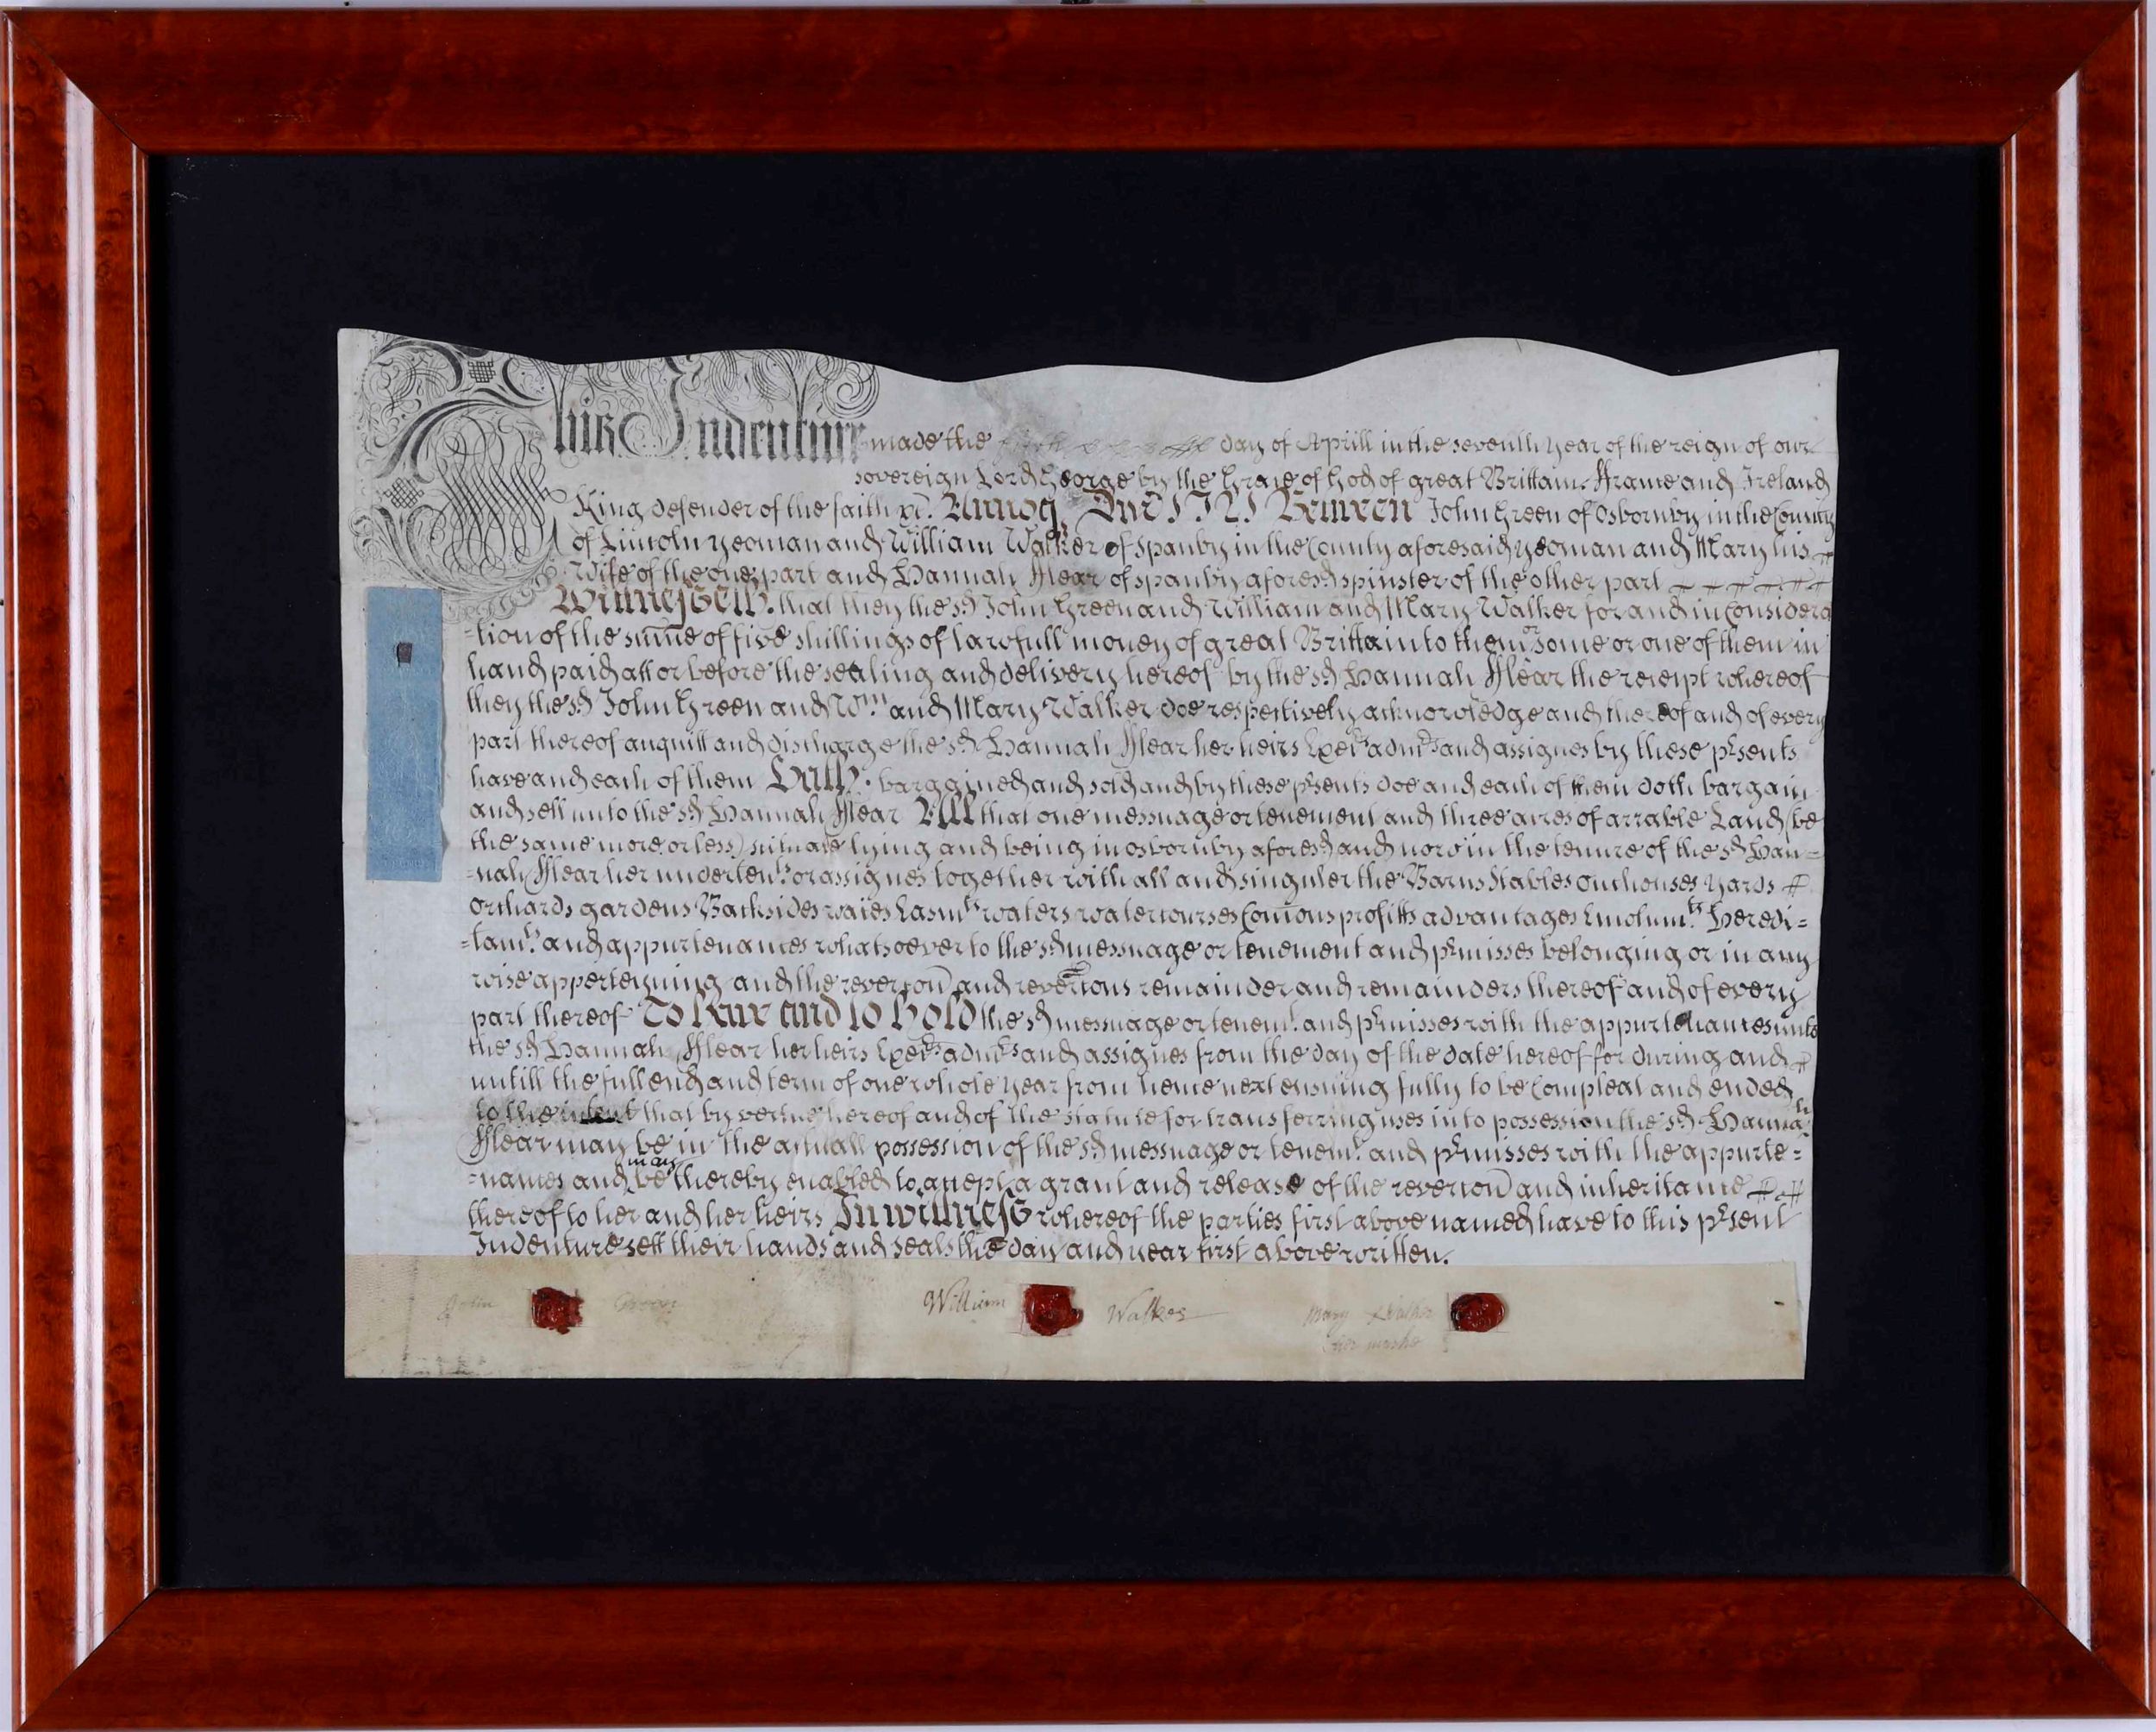 This Indenture made the day of Aprill in the seventh year of the reign of our
sovereign Lord George by the Grace of God of great Brittain France and Ireland
King defender of the faith &c. Annoq Dni 1721 Between John Green of Osbornby in the County
of Lincoln yeoman and William Walker of Spanby in the County aforesaid yeoman and Mary his
Wife of the one part and Hannah Flear of spanby aforesd spinster of the other part
Witnesseth that they the sd John Green and William and Mary Walker for and in Considera
=tion of the sume of five shillings of lawfull money of great Brittain to them or some or one of them in
hand paid att or before the sealing and delivery hereof by the sd Hannah Flear the receipt whereof
they the sd John Green and Wm and Mary Walker doe respectively acknowledge and thereof and of every
part thereof acquitt and discharge the sd Hannah Flear her heirs Exectrs admrs and assignes by these psents
have and each of them Hath bargained and sold and by these psents doe and each of them doth bargain
and sell unto the sd Hannah Flear All that one messuage or tenement and three acres of arrable Land (be
the same more or less) situate lying and being in osbornby aforesd and now in the tenure of the sd Han=
=nah Flear her undertents or assignes together with all and singuler the Barns Stables outhouses yards
orchards gardens Backsides waies Easmts waters watercourses Comons profitts advantages Emolumts Heredi=
=tamts and appurtenances whatsoever to the sd messuage or tenement and pmisses belonging or in any
wise apperteyning and the revercon and revercons remainder and remainders thereof and of every
part thereof To Have and to Hold the sd messuage or tenemt and pmisses with the appurtenances unto
the sd Hannah Flear her heirs Exectrs admrs and assignes from the day of the date hereof for during and
untill the full end and term of one whole year from hence next ensuing fully to be Compleat and ended
to the intent that by vertue hereof and of the statute for transferring uses into possession the sd Hannah
Flear may be in the actuall possession of the sd messuage or tenemt and pmisses with the appurte=
=nances and may be thereby enabled to accept a grant and release of the revercon and inheritance
thereof to her and her heirs In witness whereof the parties first above named have to this psent
Indenture sett their hands and seals the day and year first above written.
John Green William Walker Mary x Walker
her marke